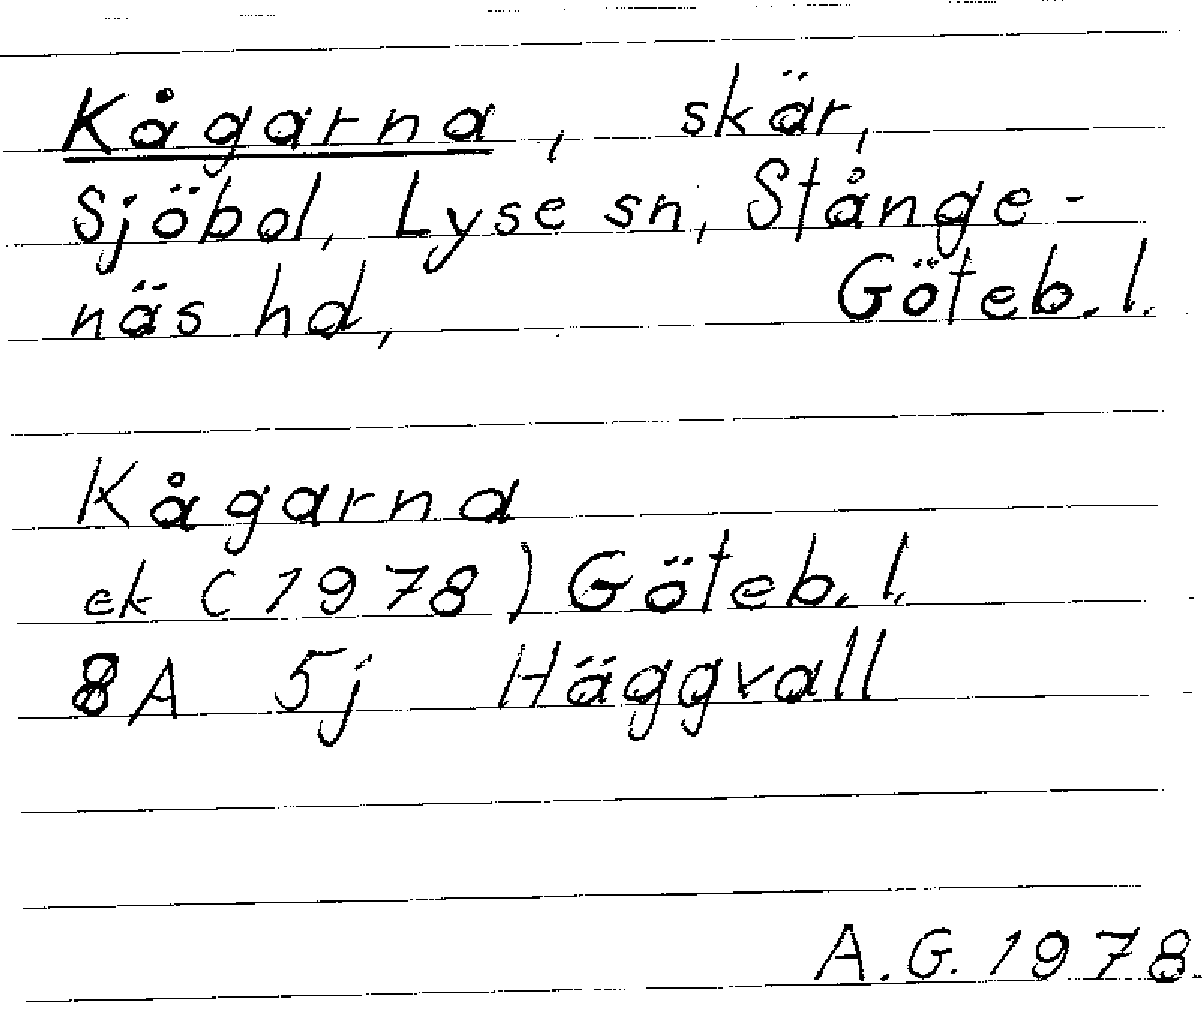 Kågarna, skär,
Sjöbol, Lyse sn, Stånge-
näs hd, Göteb. l.
Kågarna
ek (1978) Göteb. l.
8A 5j Häggvall
A.G. 1978.